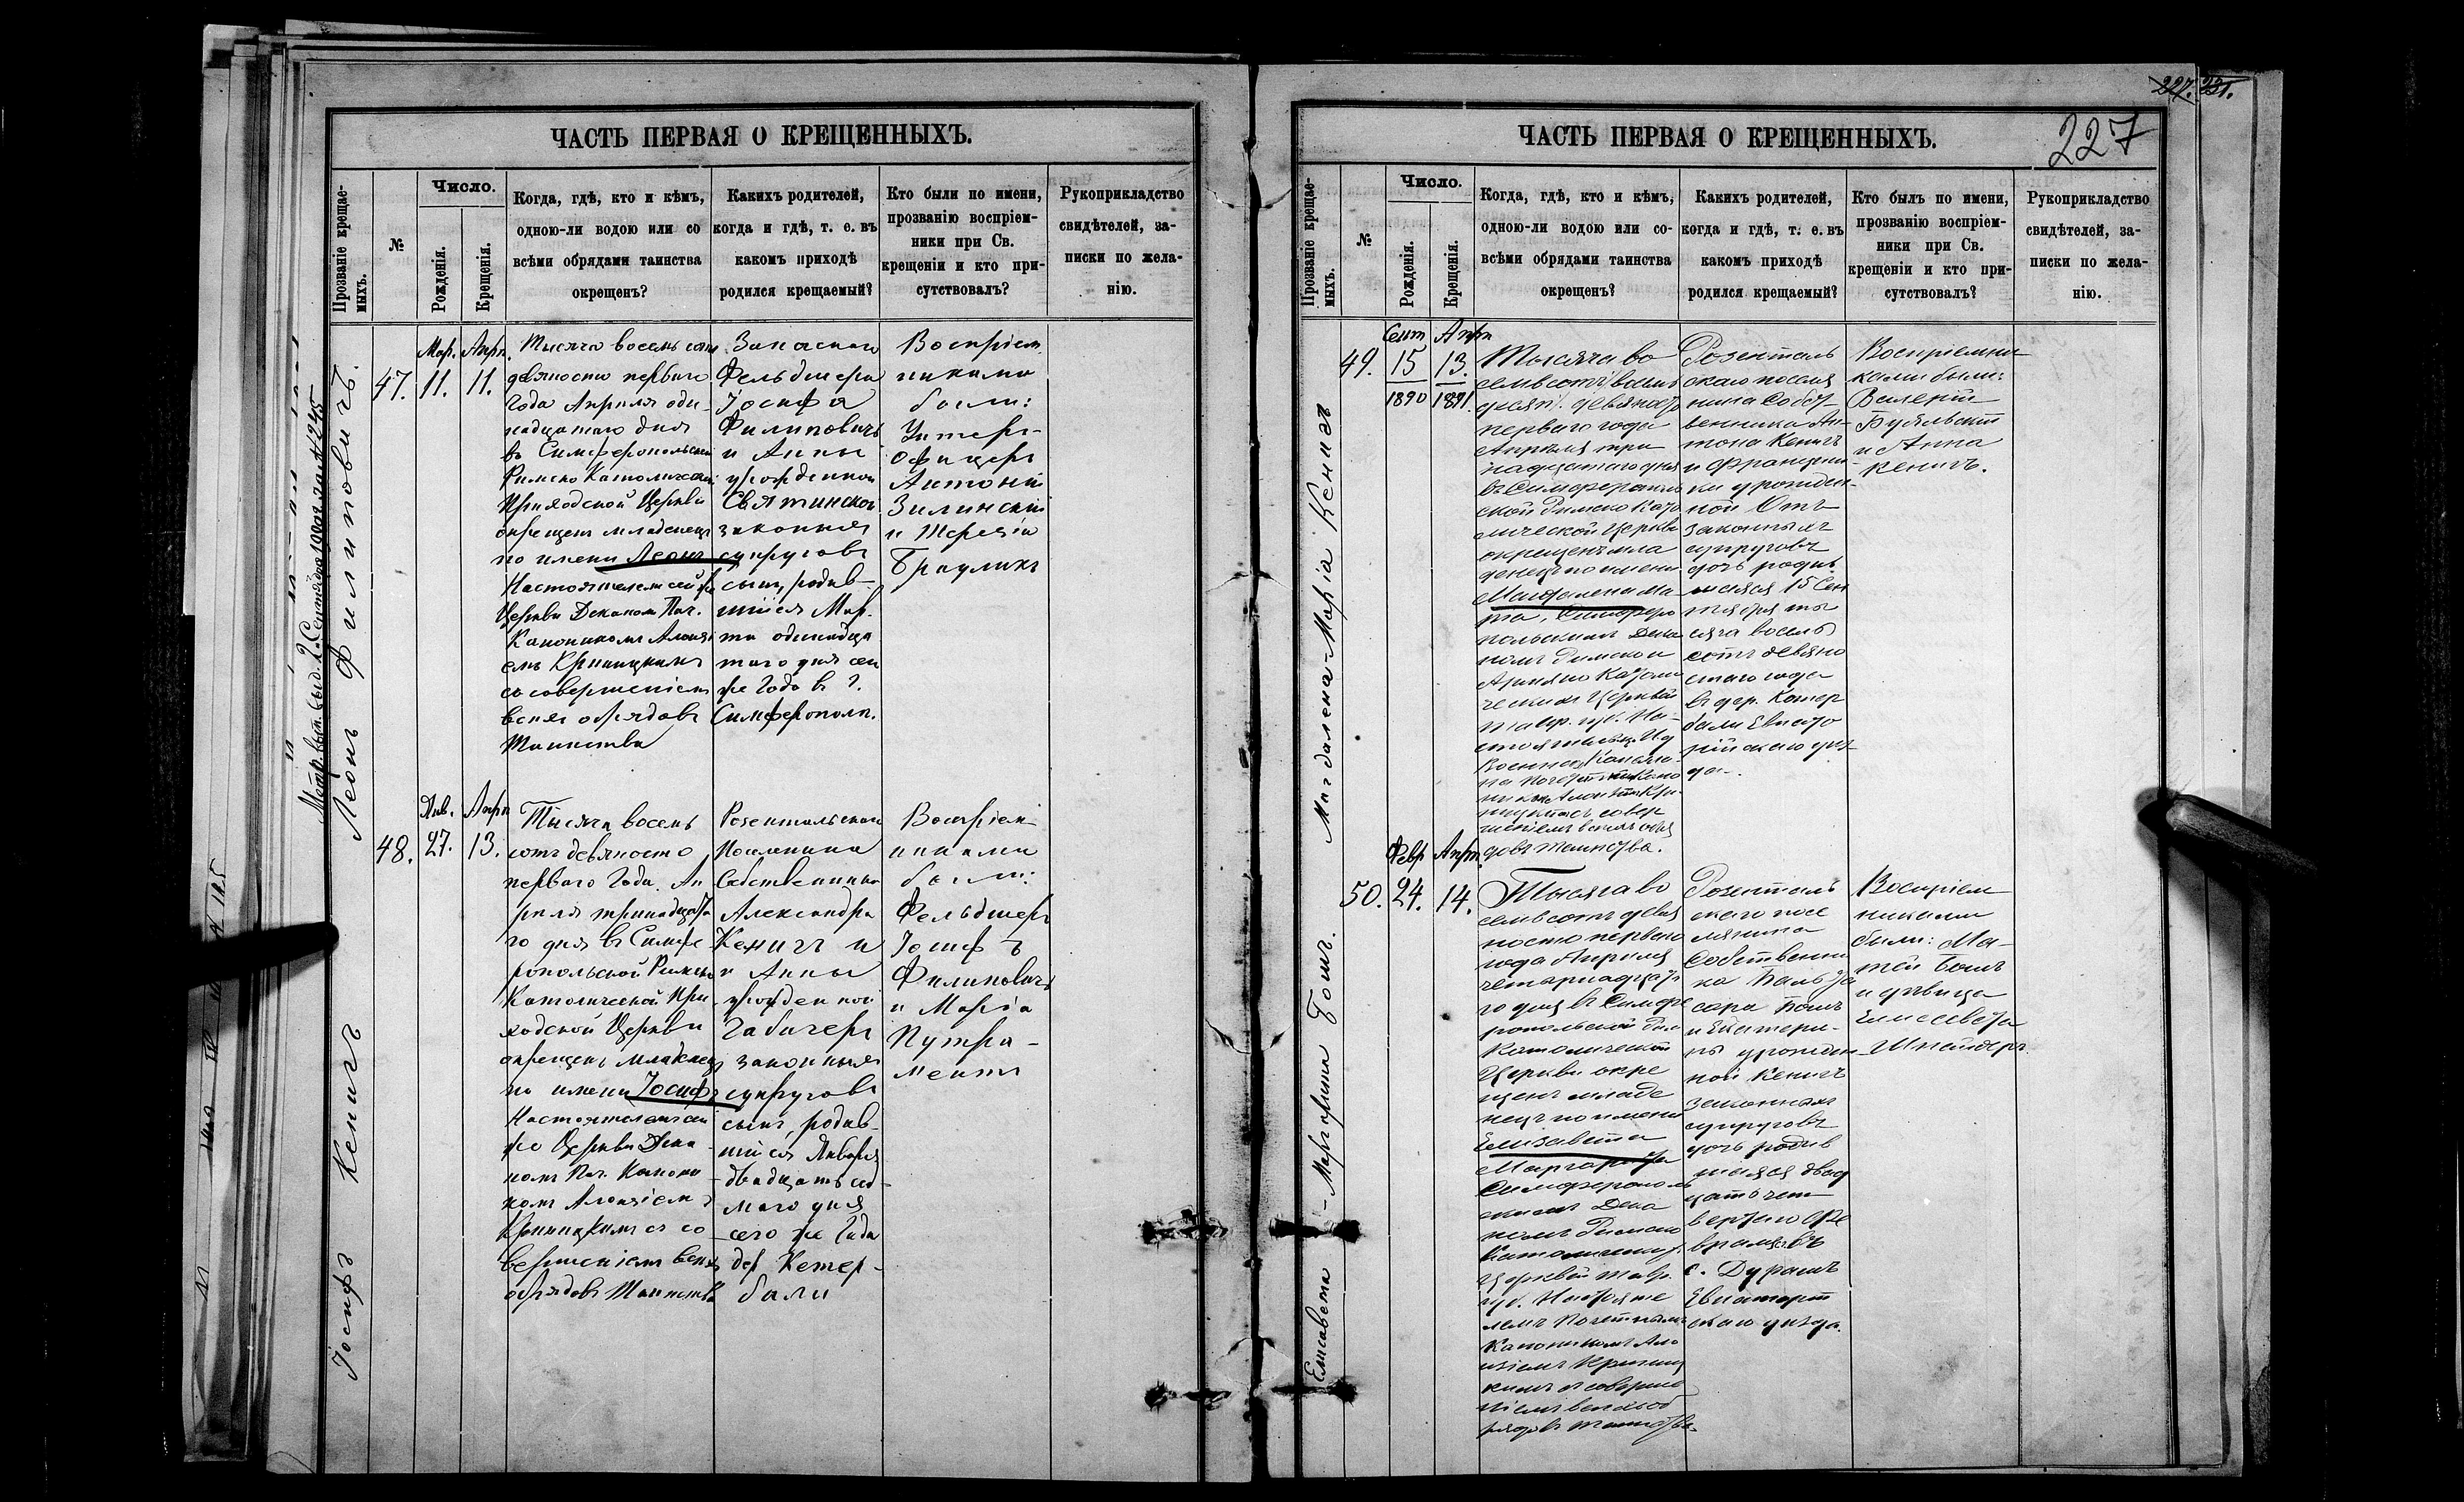 ЧАСТЬ ПЕРВАЯ О КРЕЩЕННЫХЪ.
Прозваніе крещае-
мыхъ.
№
Число.
Рожденія.
Крещенія.
Когда, гдѣ, кто и кѣмъ,
одною-ли водою или со
всѣми обрядами таинства
окрещенъ?
Какихъ родителей,
когда и гдѣ, т. е. въ
какомъ приходѣ
родился крещаемый?
Кто были по имени,
прозванію воспріем-
ники при Св.
крещеніи и кто при-
сутствовалъ?
Рукоприкладство
свидѣтелей, за-
писки по жела-
нію.
Леонъ Филиповичъ.
47.
Мар.
11.
Апрл.
11.
Тысяча восемь сотъ
девяносто перваго
Года Апрѣля оди-
надцатаго дня
въ Симферопольской
Римско Католической
Приходской Церкви
окрещенъ младенецъ
по имени Леонъ
Настоятелемъ сей же
Церкви Деканомъ Поч.
Каноникомъ Алоизі
емъ Криницкимъ
со совершеніемъ
всѣхъ обрядовъ
Таинства
Запаснаго
Фельдшера
Іосифа
Филиповичъ
и Анны
урожденной
Святинской
законныхъ
супруговъ
сынъ, родив-
шійся Мар-
та одинадца
таго дня сего
же Года в г.
Симферополѣ.
Воспріем
никами
были:
Унтеръ-
офицеръ
Антоній
Зилинскій
и Терезія
Браулихъ
Іосифъ Кенигъ
48.
Янв.
27.
Апрл
13.
Тысяча восемь
сотъ девяносто
перваго Года Ап
рѣля тринадцата
го дня въ Симфе
ропольской Римско
Католической При
ходской Церкви
окрещенъ младенецъ
по имени Іосифъ
Настоятелемъ сей
же Церкви Дека
номъ Поч. Канони
комъ Алоизіемъ
Криницкимъ съ со
вершеніемъ всѣхъ
обрядовъ Таинства
Розентальскаго
Поселянина
Собственника
Александра
Кенигъ и
и Анны
урожденной
Габачеръ
законныхъ
супруговъ
сынъ, родив-
шійся Января
двадцать сед-
маго дня
сего же Года
дер. Кетер-
бали
Воспріем-
никами
были:
Фельдшеръ
Іосифъ
Филиповичъ
и Марія
Путра-
ментъ
227. 231.
227
ЧАСТЬ ПЕРВАЯ О КРЕЩЕННЫХЪ.
Прозваніе крещае-
мыхъ.
№
Число.
Рожденія.
Крещенія.
Когда, гдѣ, кто и кѣмъ,
одною-ли водою или со-
всѣми обрядами таинства
окрещенъ?
Какихъ родителей,
когда и гдѣ, т. е. въ
какомъ приходѣ
родился крещаемый?
Кто былъ по имени,
прозванію воспріем-
ники при Св.
крещеніи и кто при-
сутствовалъ?
Рукоприкладство
свидѣтелей, за-
писки по жела-
нію.
Магдалена-Марія Кенигъ
49.
Сент
15
1890
Апрл
13.
1891.
Тысяча во
семьсотъ
девяносто
перваго года
Апрѣля три
надцатаго дня
въ Симферополь
ской Римско Като
лической Церкви
окрещенъ мла
денецъ по имени
Магдалена Ма-
рія, Симферо
польскимъ Дека
номъ Римско и
Армяно Католи
ческихъ Церквей
Тавр. губ. На-
стоятелемъ
Военнымъ Капелла-
номъ
Алоизіемъ Кри-
ницкимъ съ совер
шеніемъ всѣхъ обря
довъ таинства.
Розенталь
скаго поселя
нина Собст
венника Ан-
тона Кенигъ
и Францишки
урожден-
ной Отъ
законныхъ
супруговъ
дочь родив
шаяся 15 Сен
тября ты
сяча восемь
сотъ девяно
стаго года
въ дер. Кетер
бали Евпато
рійскаго уѣз-
да.
Воспріемни-
ками были:
Валерій
и Анна
Кенигъ.
Елисавета - Маргарита Бошъ.
50.
Февр
24.
Апрл.
14.
Тысяча во
семьсотъ девя
носто перваго
года Апрѣля
четырнадцата
го дня въ Симфе
ропольской Рим
Католической
Церкви окре
щенъ младе
нецъ по имени
Елизавета
Маргарита
Симферополь
скимъ Дека
номъ Римско
Католическ.
Церквей Тавр.
губ. Настояте
лемъ Почетнымъ
Каноникомъ Ало
изіемъ Криниц
кимъ съ соверше
ніемъ всѣхъ об
рядовъ таинства
Розенталь
скаго посе
лянина
Собственни
ка Бальта
сара Бошъ
и Екатери-
ны урожден
ной Кенигъ
законныхъ
супруговъ
дочь родив
шаяся двад
цать чет
вертаго Фе
враля въ
с. Дурашъ
Евпаторій
скаго уѣзда.
Воспріем
никами
были: Ма-
тей Бошъ
и дѣвица
Елисавета
Шнейдеръ